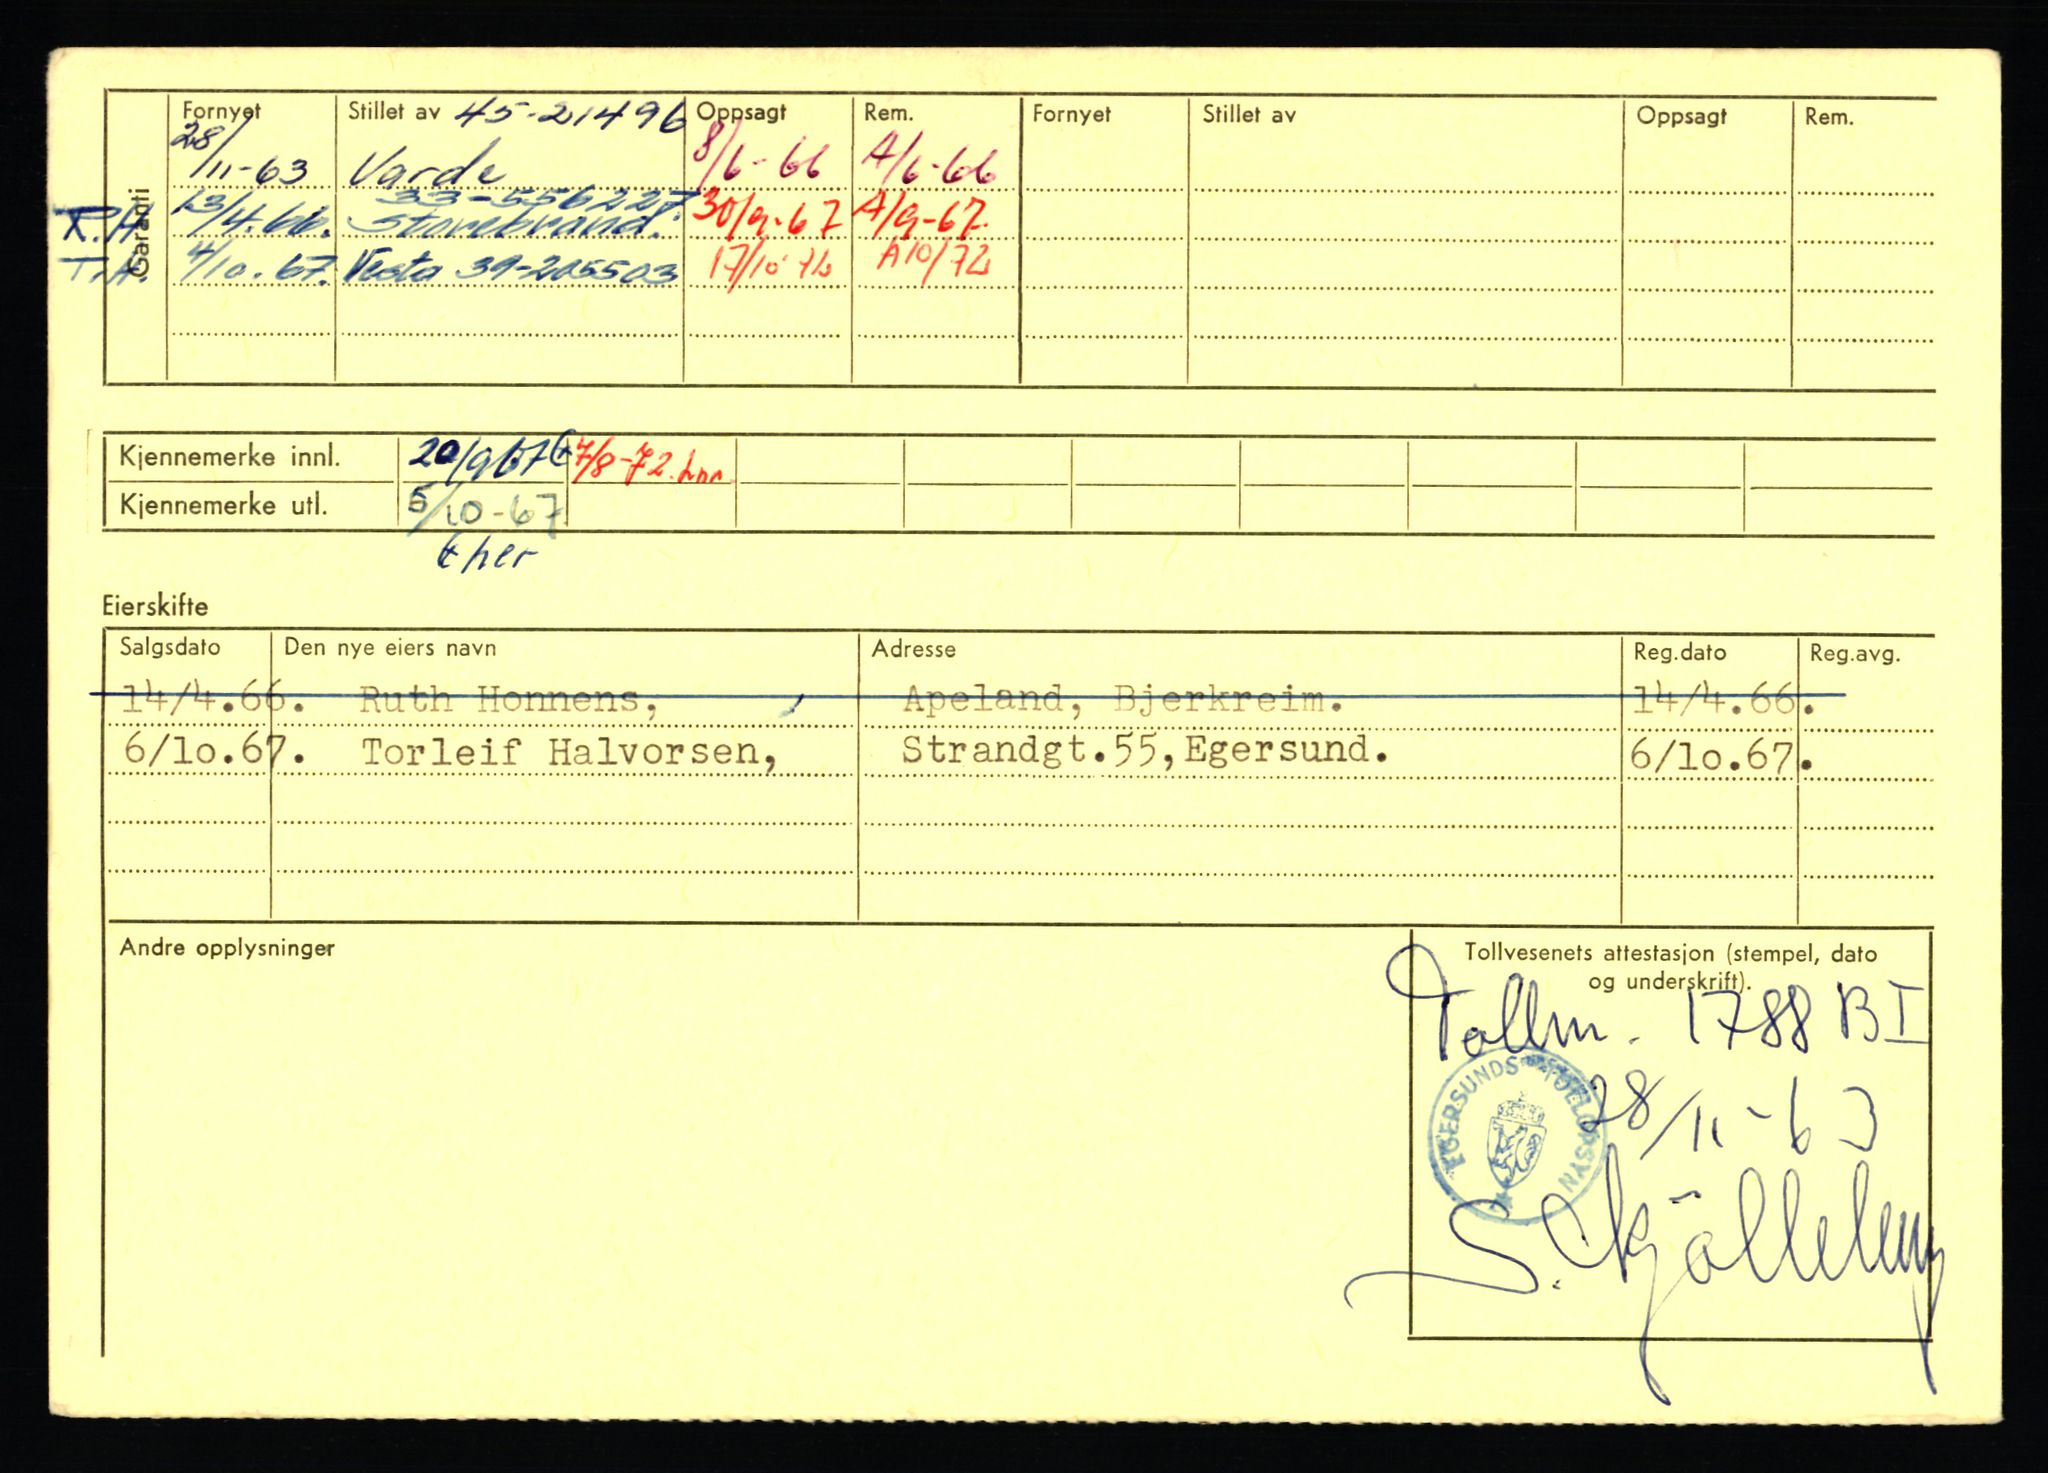 Garanti
Fornyet Stillet av 45-21496 Oppsagt Rem. Fornyet Stillet av Oppsagt Rem.
28/11-63 Varde 8/6-66 A/6-66
33-556227.
R.H. 13/4.66. Storebrand. 30/9-67 A/9-67.
T.H. 4/10.67. Vesta 39-205503 17/10 72 A10/72
Kjennemerke innl. 20/9 67 7/8-72.
Kjennemerke utl. 5/10-67
her
Eierskifte
Salgsdato Den nye eiers navn Adresse Reg.dato Reg.avg.
14/4.66. Ruth Honnens, Apeland, Bjerkreim. 14/4.66.
6/10.67. Torleif Halvorsen, Strandgt.55,Egersund. 6/10.67.
Andre opplysninger
Tollvesenets attestasjon (stempel, dato
og underskrift).
Tollm. 1788 B I
EGERSUNDS TOLLOPPSYN
28/11-63